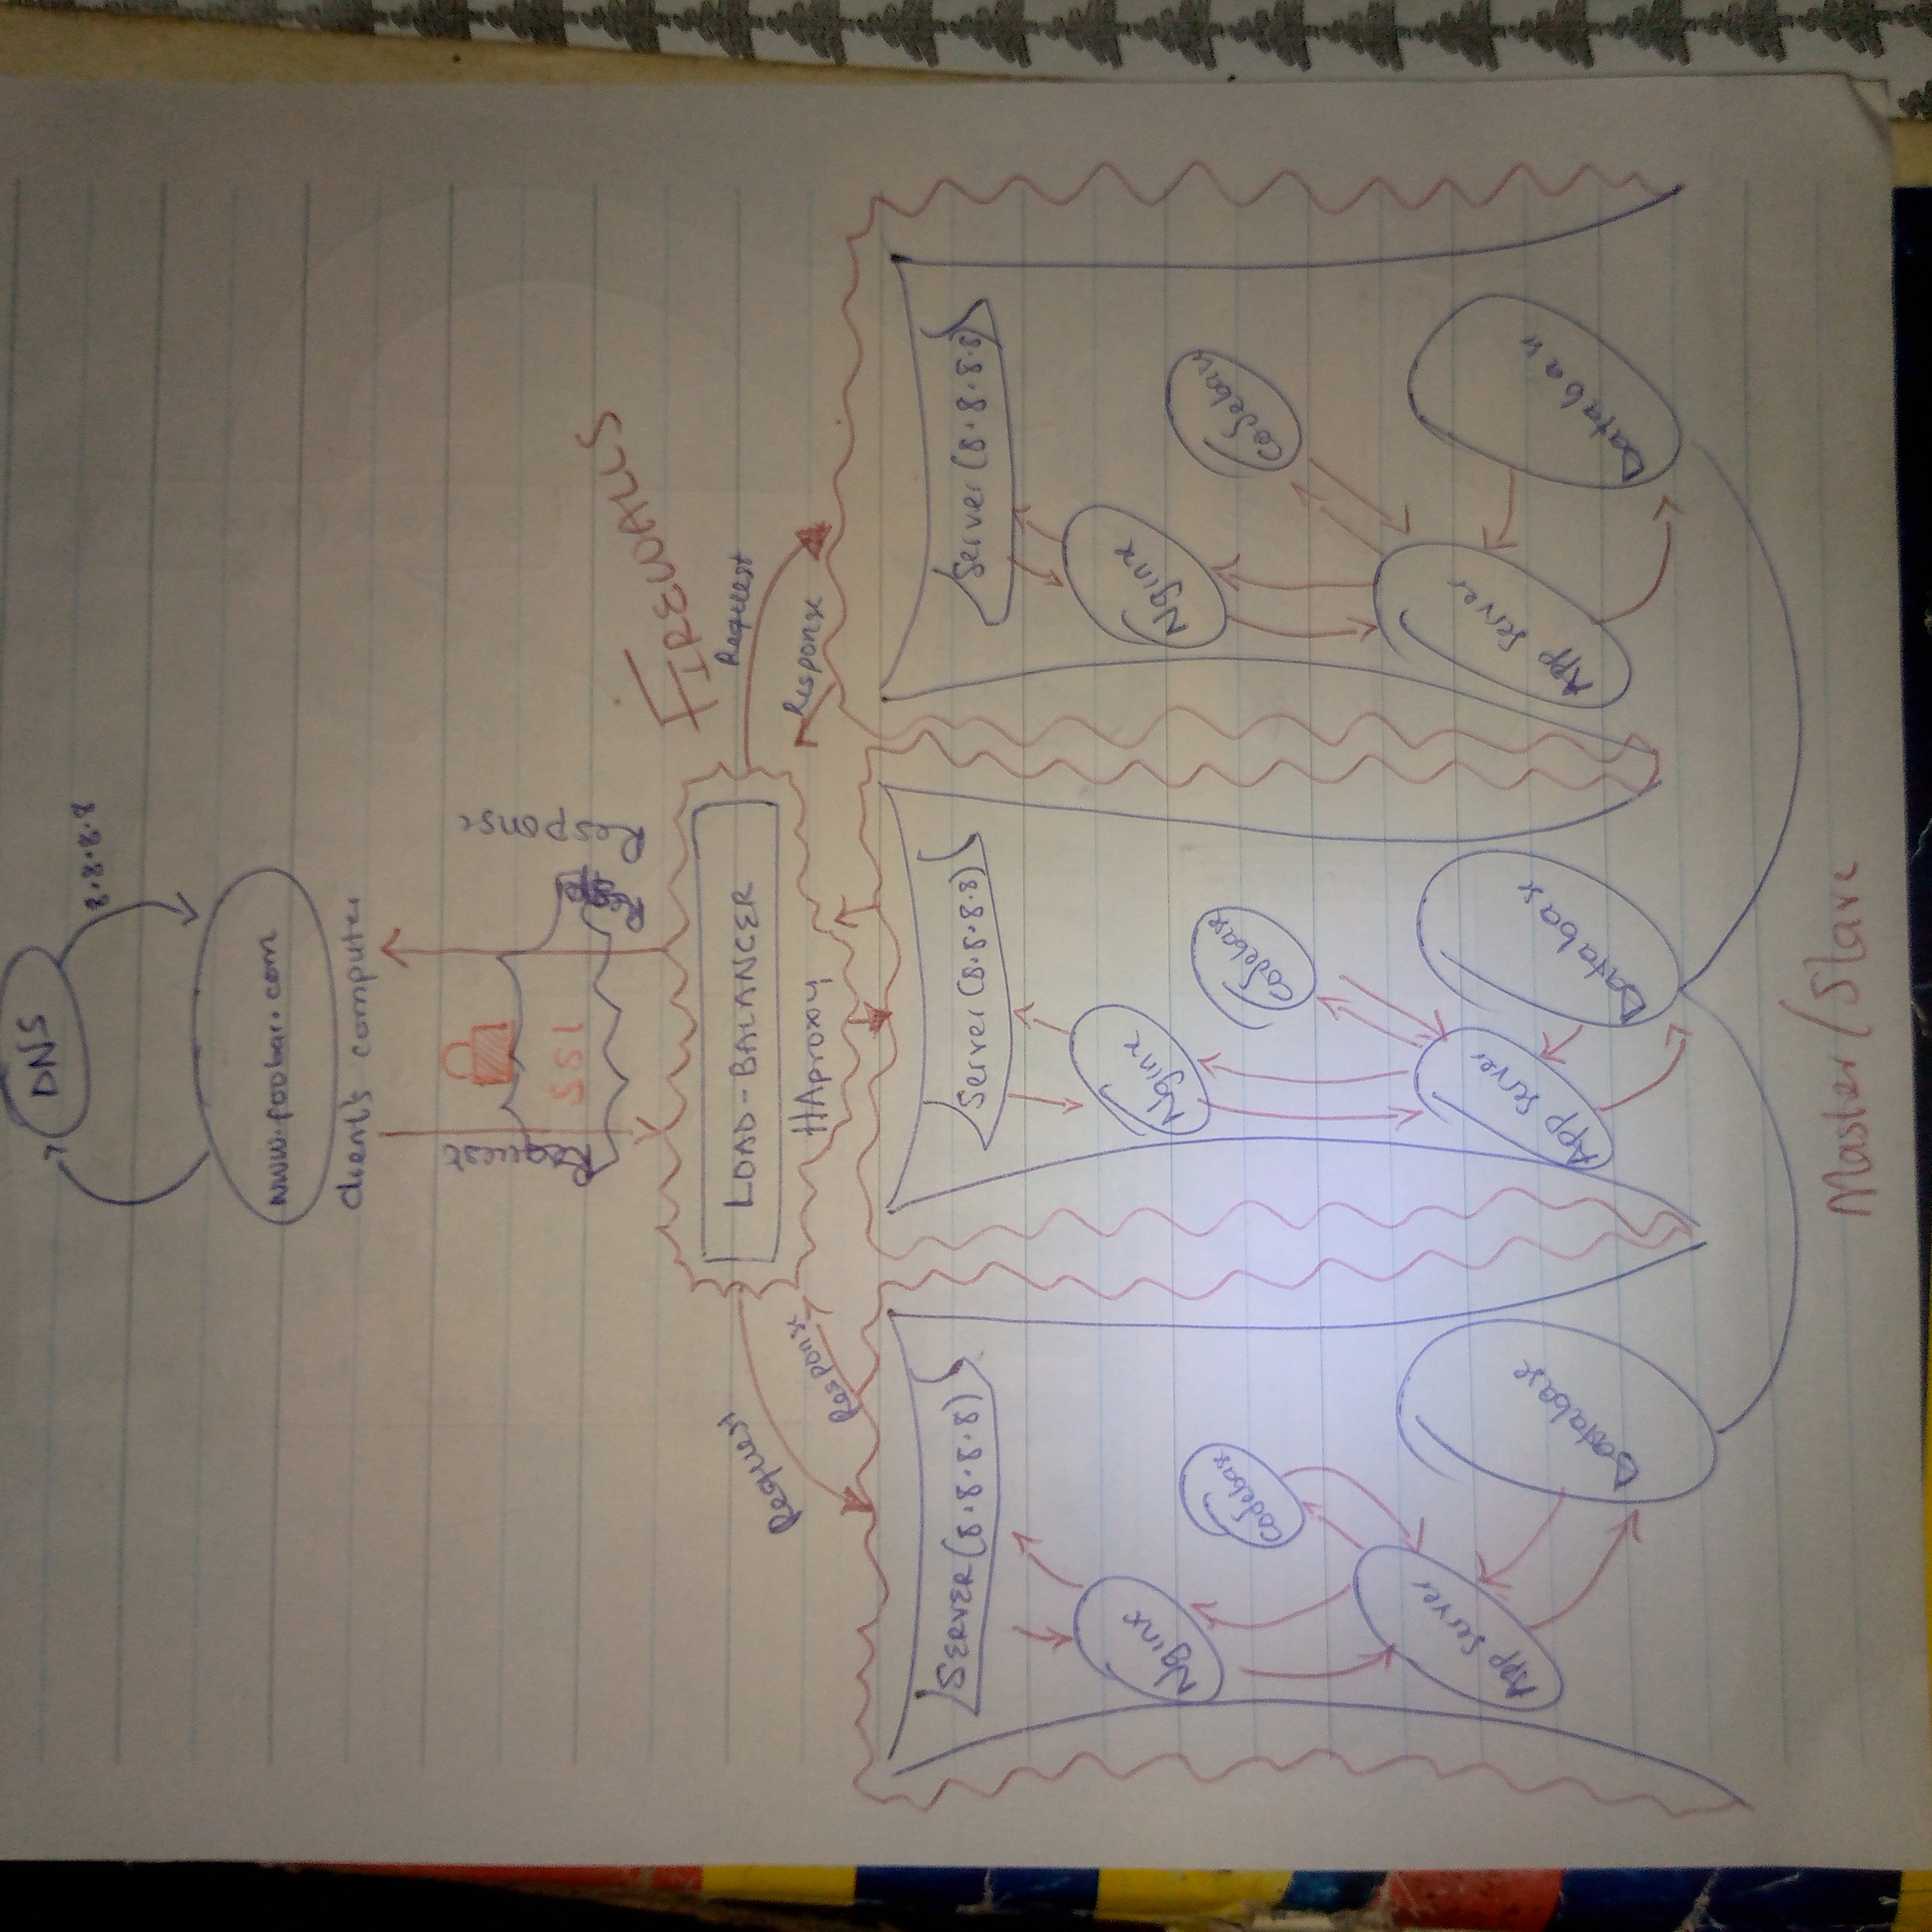 DNS
8.8.8.8
www.foobar.com
client's computer
Request
Response
SSL
FIREWALLS
LOAD-BALANCER
HAproxy
Request
Response
Request
Response
SERVER (8.8.8.8)
Nginx
Codebase
App Server
Database
Server (8.8.8.8)
Nginx
Codebase
App Server
Database
Server (8.8.8.8)
Nginx
Codebase
App Server
Database
Master/Slave